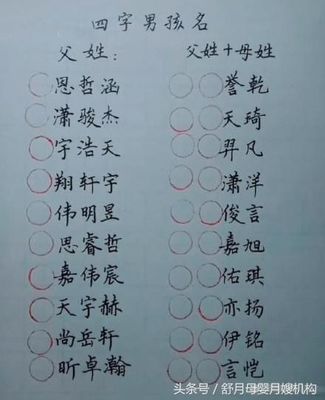 四字男孩名
父姓：
○恩哲涵
○潇骏杰
○宇浩天
○翔轩宇
○伟明昱
○思睿哲
○嘉伟宸
○天宇赫
○尚岳轩
○昕卓瀚
父姓+母姓
○○誉乾
○○天琦
○○羿凡
○○潇洋
○○俊言
○○嘉旭
○○佑琪
○○亦扬
○○伊铭
○○言恺
头条号 / 舒月母婴月嫂机构